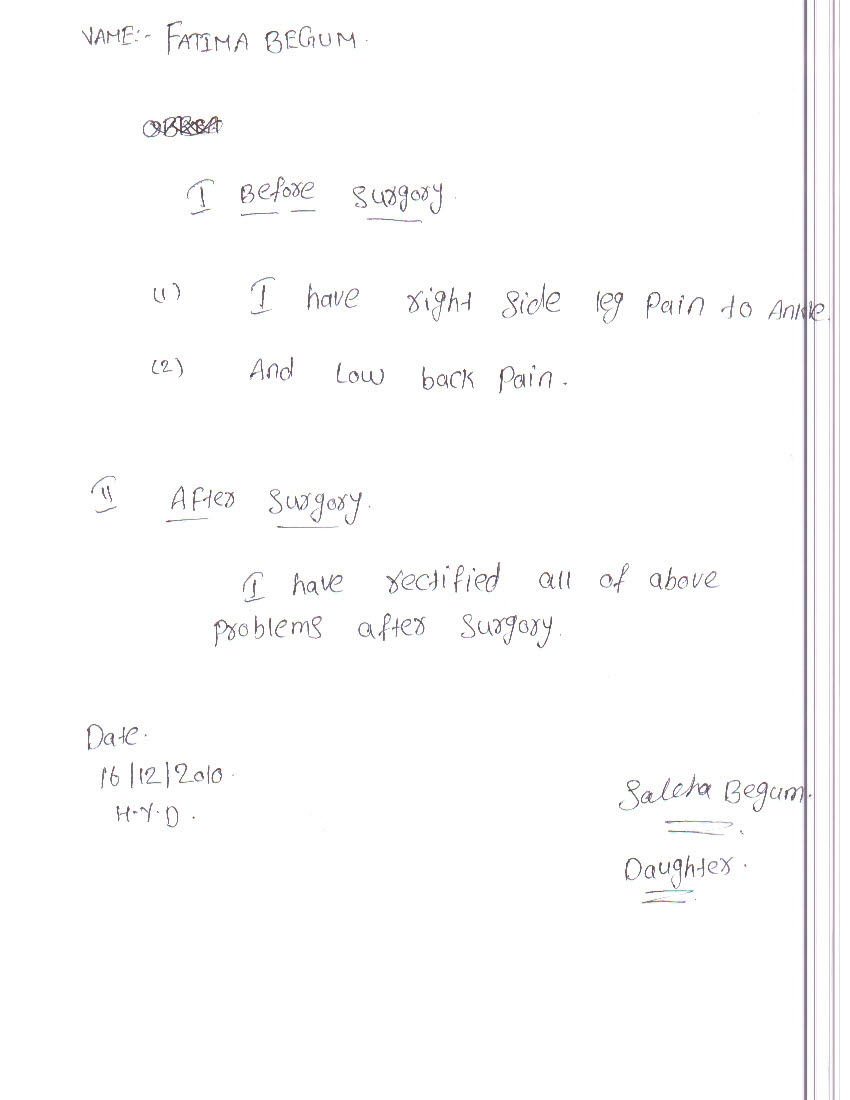 NAME:- FATIMA BEGUM.
I Before Surgory.
(1) I have right Side leg Pain to Ankle.
(2) And Low back Pain.
II After Surgory.
I have rectified all of above
problems after Surgory.
Date.
16/12/2010.
H.Y.D.
Saleha Begum.
Daughter.